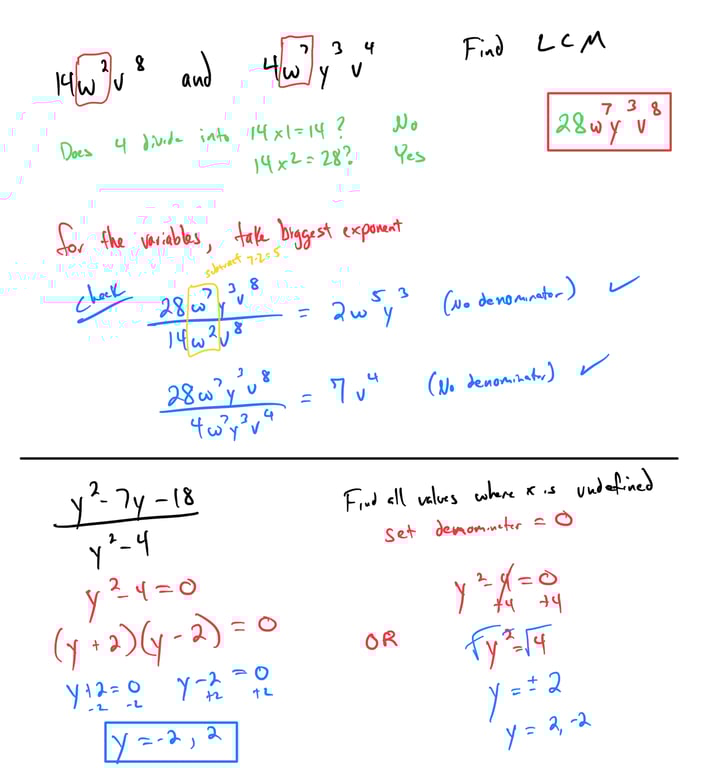 14w²v⁸ and 4w⁷y³v⁴ Find LCM
28w⁷y³v⁸
Does 4 divide into 14x1=14? No
14x2=28? Yes
for the variables, take biggest exponent
subtract 7-2=5
Check 28w⁷y³v⁸/14w²v⁸ = 2w⁵y³ (No denominator) ✓
28w⁷y³v⁸/4w⁷y³v⁴ = 7v⁴ (No denominator) ✓
y²-7y-18/y²-4 Find all values where x is undefined
set denominator = 0
y²-4=0
(y+2)(y-2)=0
y+2=0 y-2=0
-2 -2 +2 +2
y=-2, 2
OR
y²-4=0
+4 +4
√y²=√4
y=±2
y=2,-2